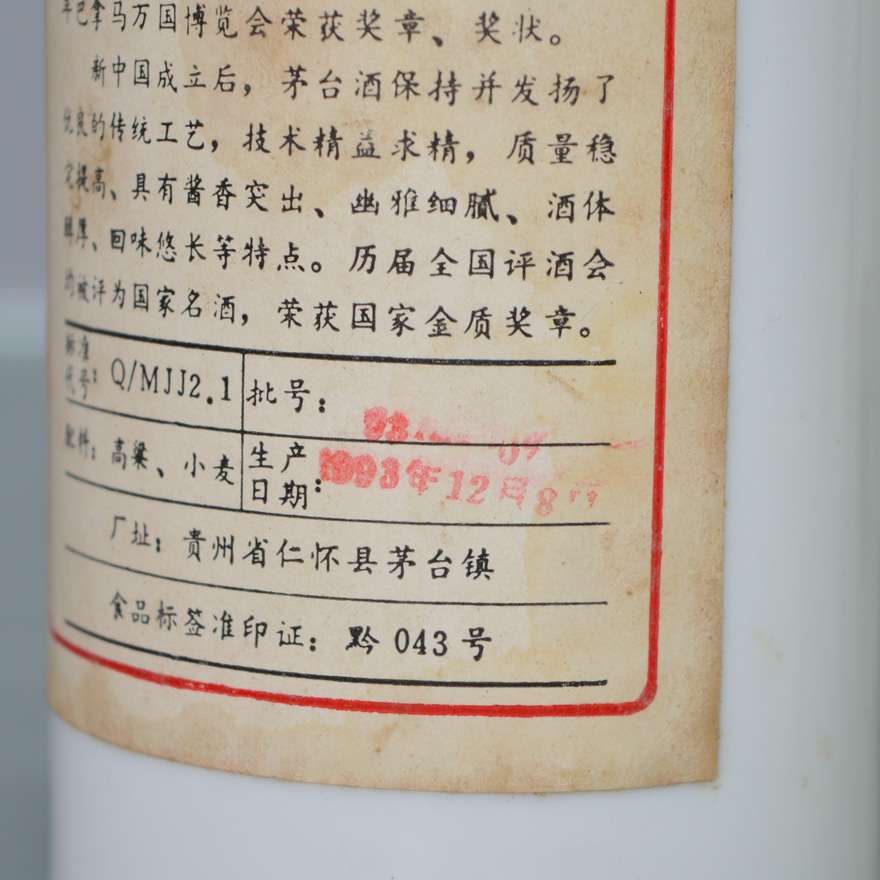 年巴拿马万国博览会荣获奖章、奖状。
新中国成立后，茅台酒保持并发扬了
优良的传统工艺，技术精益求精，质量稳
定提高、具有酱香突出、幽雅细腻、酒体
醇厚、回味悠长等特点。历届全国评酒会
均被评为国家名酒，荣获国家金质奖章。
标准代号：Q/MJJ2.1 批号：
配料：高粱、小麦 生产日期：1993年12月8日
厂址：贵州省仁怀县茅台镇
食品标签准印证：黔043号